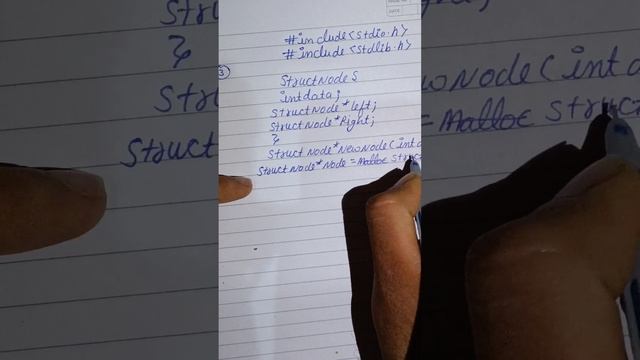 #include<stdio.h>
#include<stdlib.h>
3
StructNode S
intdata;
StructNode*left;
StructNode*Right;
}
StructNode*NewNode(int
StructNode*Node=Malloc Struc